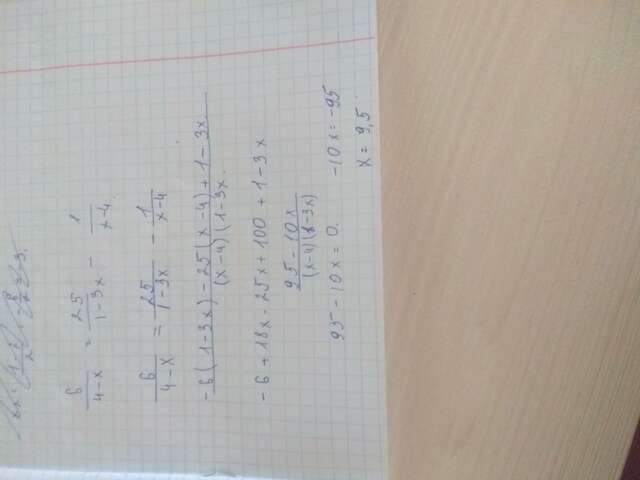 6/(4-x) = 25/(1-3x) - 1/(x-4)
6/(4-x) = 25/(1-3x) - 1/(x-4)
(-6(1-3x)-25(x-4)+1-3x)/((x-4)(1-3x)
-6+18x-25x+100+1-3x
(95-10x)/((x-4)(1-3x))
95-10x=0. -10x=-95
x=9,5